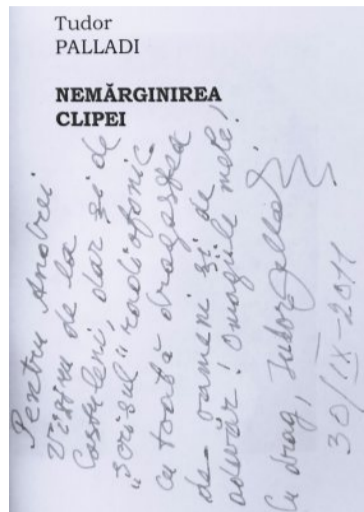 Tudor
PALLADI
NEMĂRGINIREA
CLIPEI
Pentru Andrei
Viziru de la
Costuleni, dar și de
"scrisul" radiofonic
cu toată dragostea
de oameni și de
adevăr! Omagiile mele!
Cu drag, Tudor Palladi
30/IX-2011